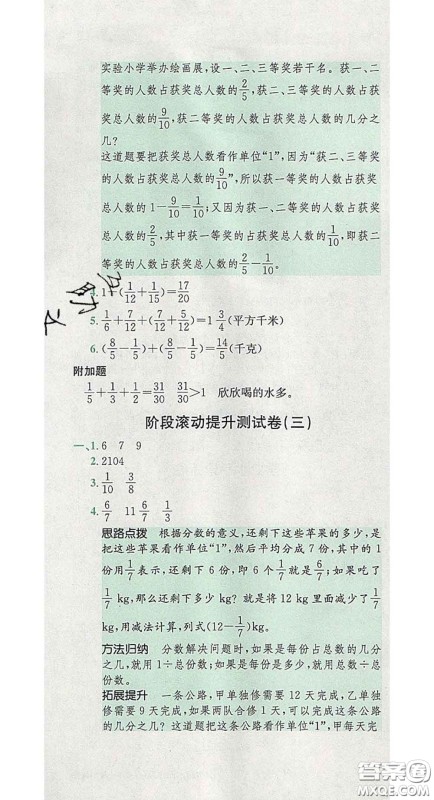 实验小学举办绘画展,设一、二、三等奖若干名。获一、二
等奖的人数占获奖总人数的2/5,获二、三等奖的人数占获
奖总人数的9/10,获二等奖的人数占获奖总人数的几分之
几?
这道题要把获奖总人数看作单位“1”,因为“获二、三等奖
的人数占获奖总人数的9/10”,所以获一等奖的人数占获奖
总人数的1-9/10=1/10;又因为获一、二等奖的人数占总人数的
2/5,其中获一等奖的人数占获奖总人数的1/10,即获二
等奖的人数占获奖总人数的2/5-1/10。
4. 1-(1/12+1/15)=17/20
5. 1/6+7/12+(7/12+5/12)=1 3/4(平方千米)
6. (8/5-1/5)+(8/5-1/5)=14/5(千克)
附加题
1/5+1/3+1/2=31/30 31/30>1 欣欣喝的水多。
阶段滚动提升测试卷(三)
一、1. 6 7 9
2. 2104
3. 1/10 3/8
4. 6/7 11 6/7 1/3
思路点拨 根据分数的意义,还剩下这些苹果的多少,是
把这些苹果看作单位“1”,然后平均分成7份,其中的1
份用1/7表示,还剩下6份,即6个1/7就是6/7;如果吃了
1/7 kg,那么还剩下多少kg?就是将12 kg里面减少了1/7
kg,用减法计算,列式(12-1/7)kg。
方法归纳 分数解决问题时,如果是每份占总数的几分
之几,就用1÷总份数;如果是每份是多少,就用总数÷总
份数。
拓展提升 一条公路,甲单独修需要12天完成,乙单独
修需要9天完成,如果两队合修1天,可以完成这条公路
的几分之几?这道题把这条公路看作单位“1”,甲每天完
答案圈